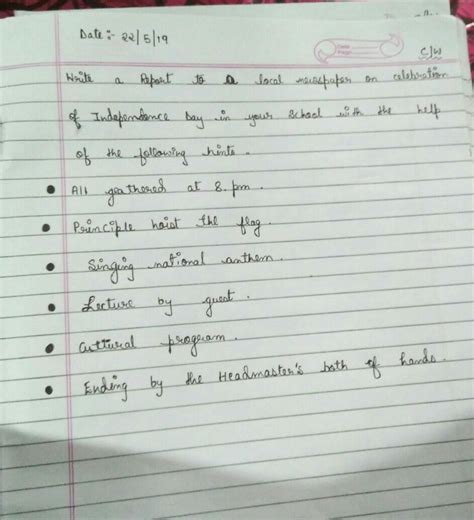 Date :- 22/5/19
C/W
Write a Report to a local newspaper on celebration
of Independance Day in your School with the help
of the following hints.
• All geathered at 8. pm.
• Principle hoist the flag.
• Singing national anthem.
• Lecture by guest.
• Cultural program.
• Ending by the Headmaster's both of hands.